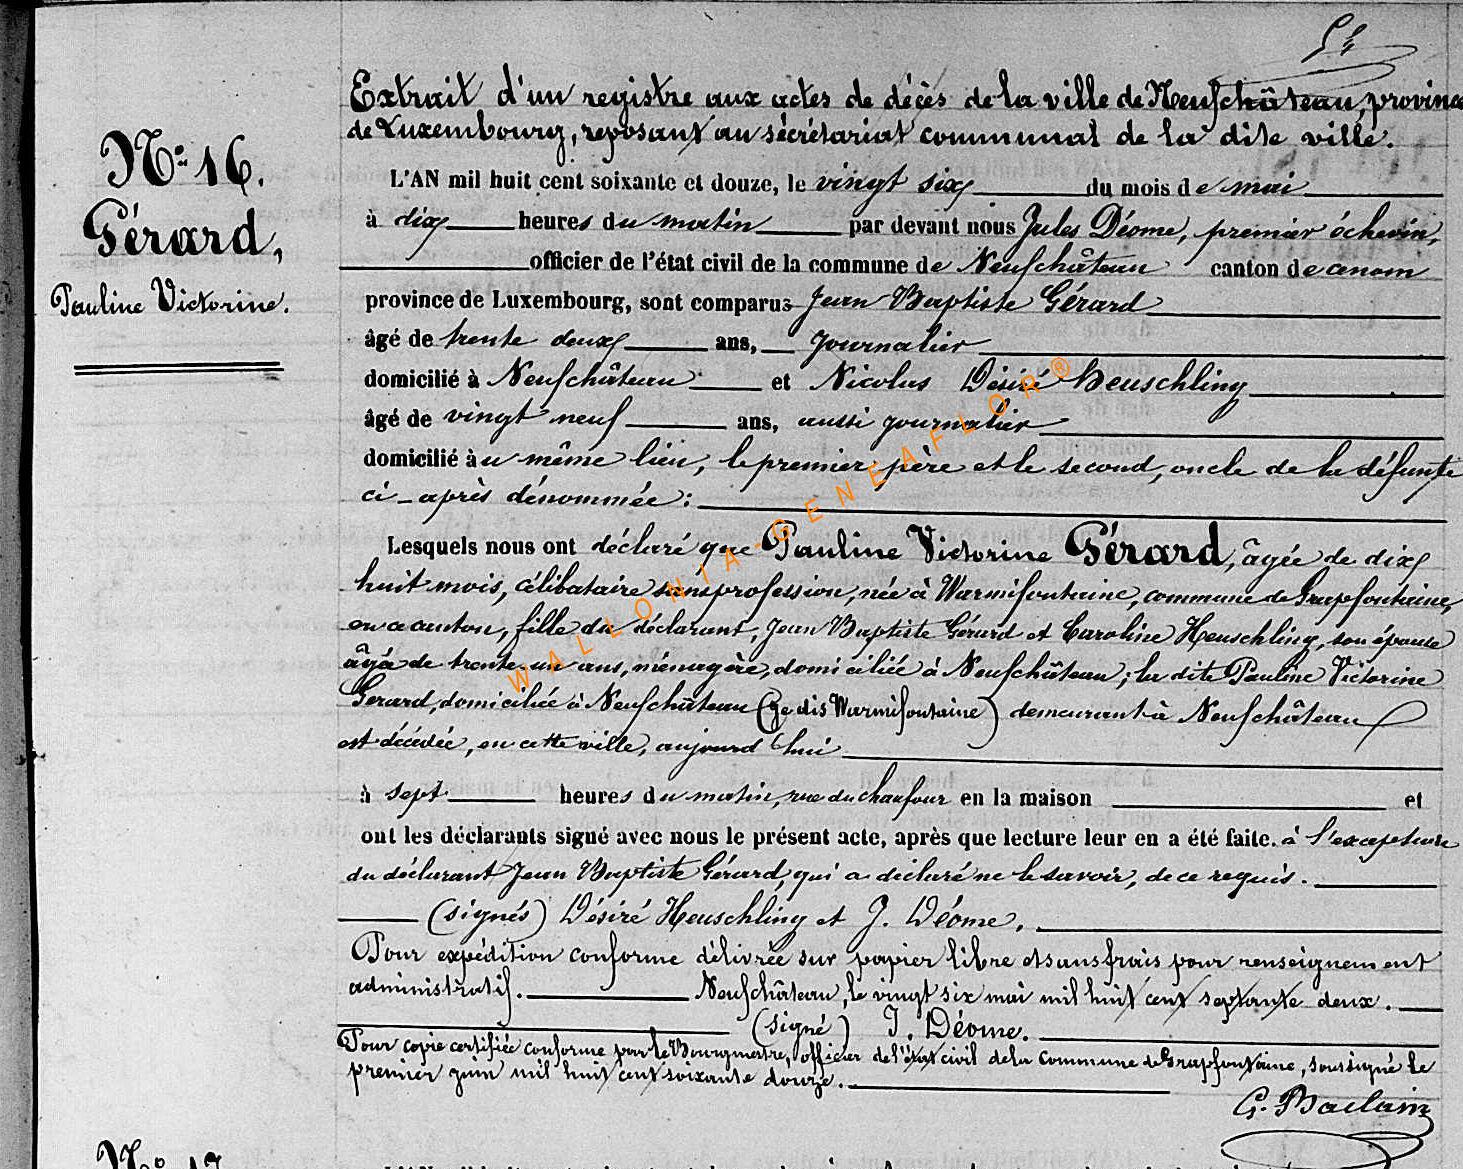 Extrait d'un registre aux actes de décès de la ville de Neufchâteau, province
de Luxembourg, reposant au sécrétariat communal de la dite ville.
N° 16.
Gérard,
Pauline Victorine.
L'AN mil huit cent soixante et douze, le vingt six du mois de mai
à dix heures du matin par devant nous Jules Déome, premier échevin,
officier de l'état civil de la commune de Neufchâteau canton de ce nom
province de Luxembourg, sont comparus Jean Baptiste Gérard
âgé de trente deux ans, journalier
domicilié à Neufchâteau et Nicolas Désiré Heuschling
âgé de vingt neuf ans, aussi journalier
domicilié au même lieu, le premier père et le second, oncle de la défunte
ci-après dénommée:
Lesquels nous ont déclaré que Pauline Victorine Gérard, âgée de dix
huit mois, célibataire sans profession, née à Warmifontaine, commune de Grapfontaine,
en ce canton, fille du déclarant, Jean Baptiste Gérard et Caroline Heuschling, son épouse
âgée de trente un ans, ménagère, domiciliée à Neufchâteau; la dite Pauline Victorine
Gerard, domiciliée à Neufchâteau (je dis Warmifontaine) demeurant à Neufchâteau
est décédée, en cette ville, aujourd'hui
à sept heures du matin, rue du chaufour en la maison et
ont les déclarants signé avec nous le présent acte, après que lecture leur en a été faite. à l'exception
du déclarant Jean Baptiste Gérard, qui a déclaré ne le savoir, de ce requis.
(signés) Désiré Heuschling et J. Déome.
Pour expédition conforme délivrée sur papier libre et sans frais pour renseignement
administratif. Neufchâteau, le vingt six mai mil huit cent septante deux.
(signé) J. Déome.
Pour copie certifiée conforme par le Bourgmestre, officier de l'état civil de la commune de Grapfontaine, soussigné le
premier juin mil huit cent soixante douze.
G.
N° 17
WALLONIA-GENEAFLOR®